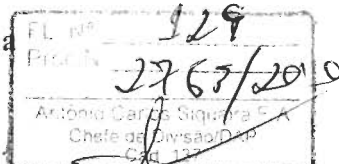 FL. Nº 129
Proc. Nº 2763/2010
Antônio Carlos Siqueira
Chefe de Divisão/DAP
Cad. 137